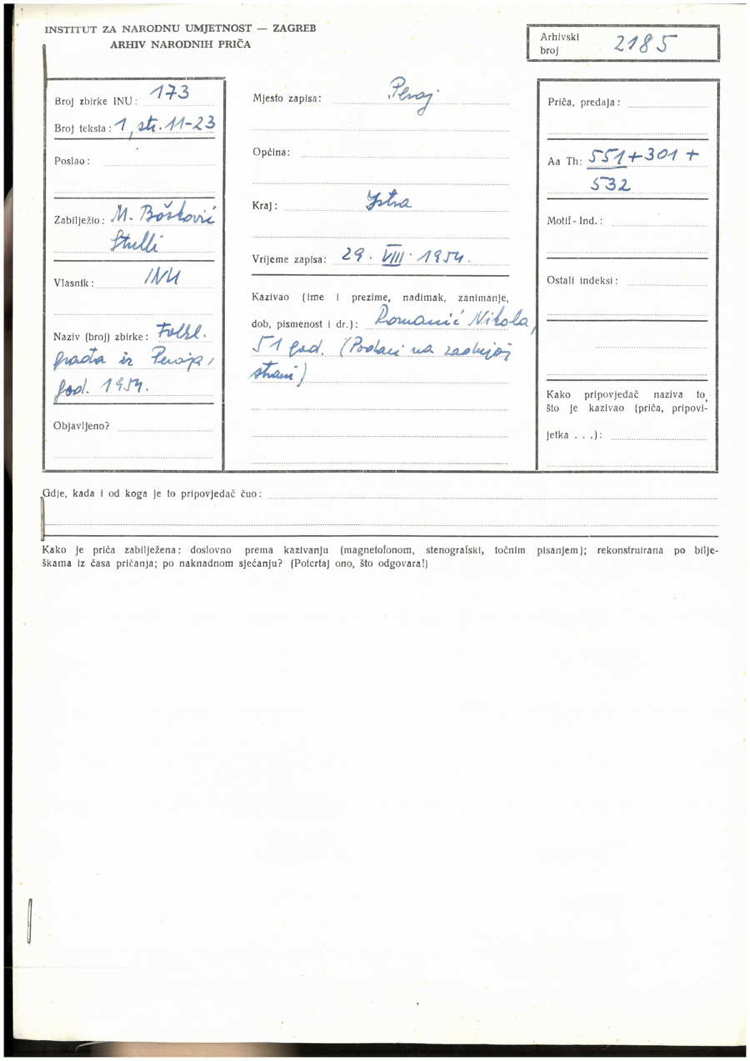 INSTITUT ZA NARODNU UMJETNOST — ZAGREB
ARHIV NARODNIH PRIČA
Arhivski
broj 2185
Broj zbirke INU: 173
Broj teksta: 1, str. 11-23
Poslao:
Zabilježio: M. Bošković
Stulli
Vlasnik: INU
Naziv (broj) zbirke: Folkl.
građa iz Peroja,
god. 1954.
Objavljeno?
Mjesto zapisa: Peroj
Općina:
Kraj: Istra
Vrijeme zapisa: 29. VIII. 1954.
Kazivao (ime i prezime, nadimak, zanimanje,
dob, pismenost i dr.): Romanić Nikola,
51 god. (Podaci na zadnjoj
strani)
Priča, predaja:
Aa Th: 551+301+
532
Motif-Ind.:
Ostali indeksi:
Kako pripovjedač naziva to,
što je kazivao (priča, pripovi-
jetka . . .):
Gdje, kada i od koga je to pripovjedač čuo:
Kako je priča zabilježena: doslovno prema kazivanju (magnetofonom, stenografski, točnim pisanjem); rekonstruirana po bilje-
škama iz časa pričanja; po naknadnom sjećanju? (Potcrtaj ono, što odgovara!)